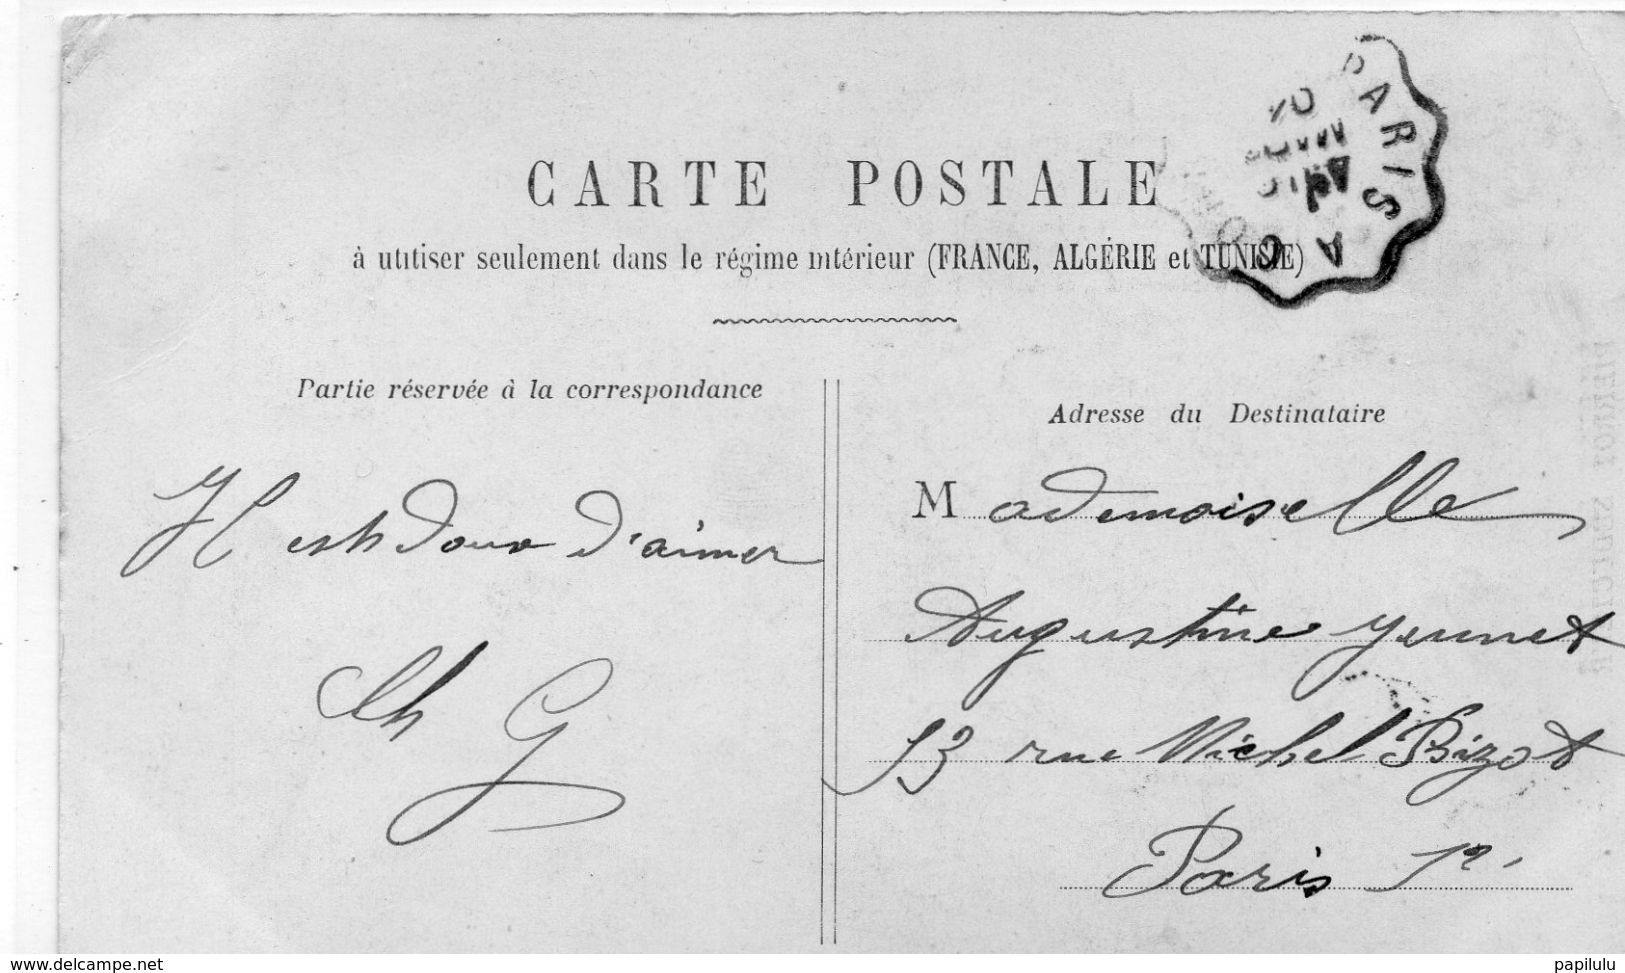 CARTE POSTALE
à utitiser seulement dans le régime intérieur (FRANCE, ALGÉRIE et TUNISIE)
Partie réservée à la correspondance
Il est doux d'aimer
Ch G
Adresse du Destinataire
Mademoiselle
Augustine
13 rue Michel Bizot
Paris 12
PARIS A
www.delcampe.net
papilulu